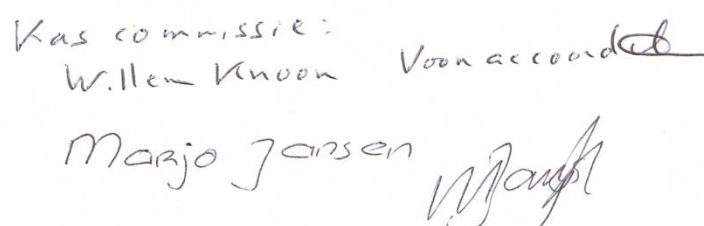 Kas commissie:
Willem Knoon Voor accoord
Marjo Jansen